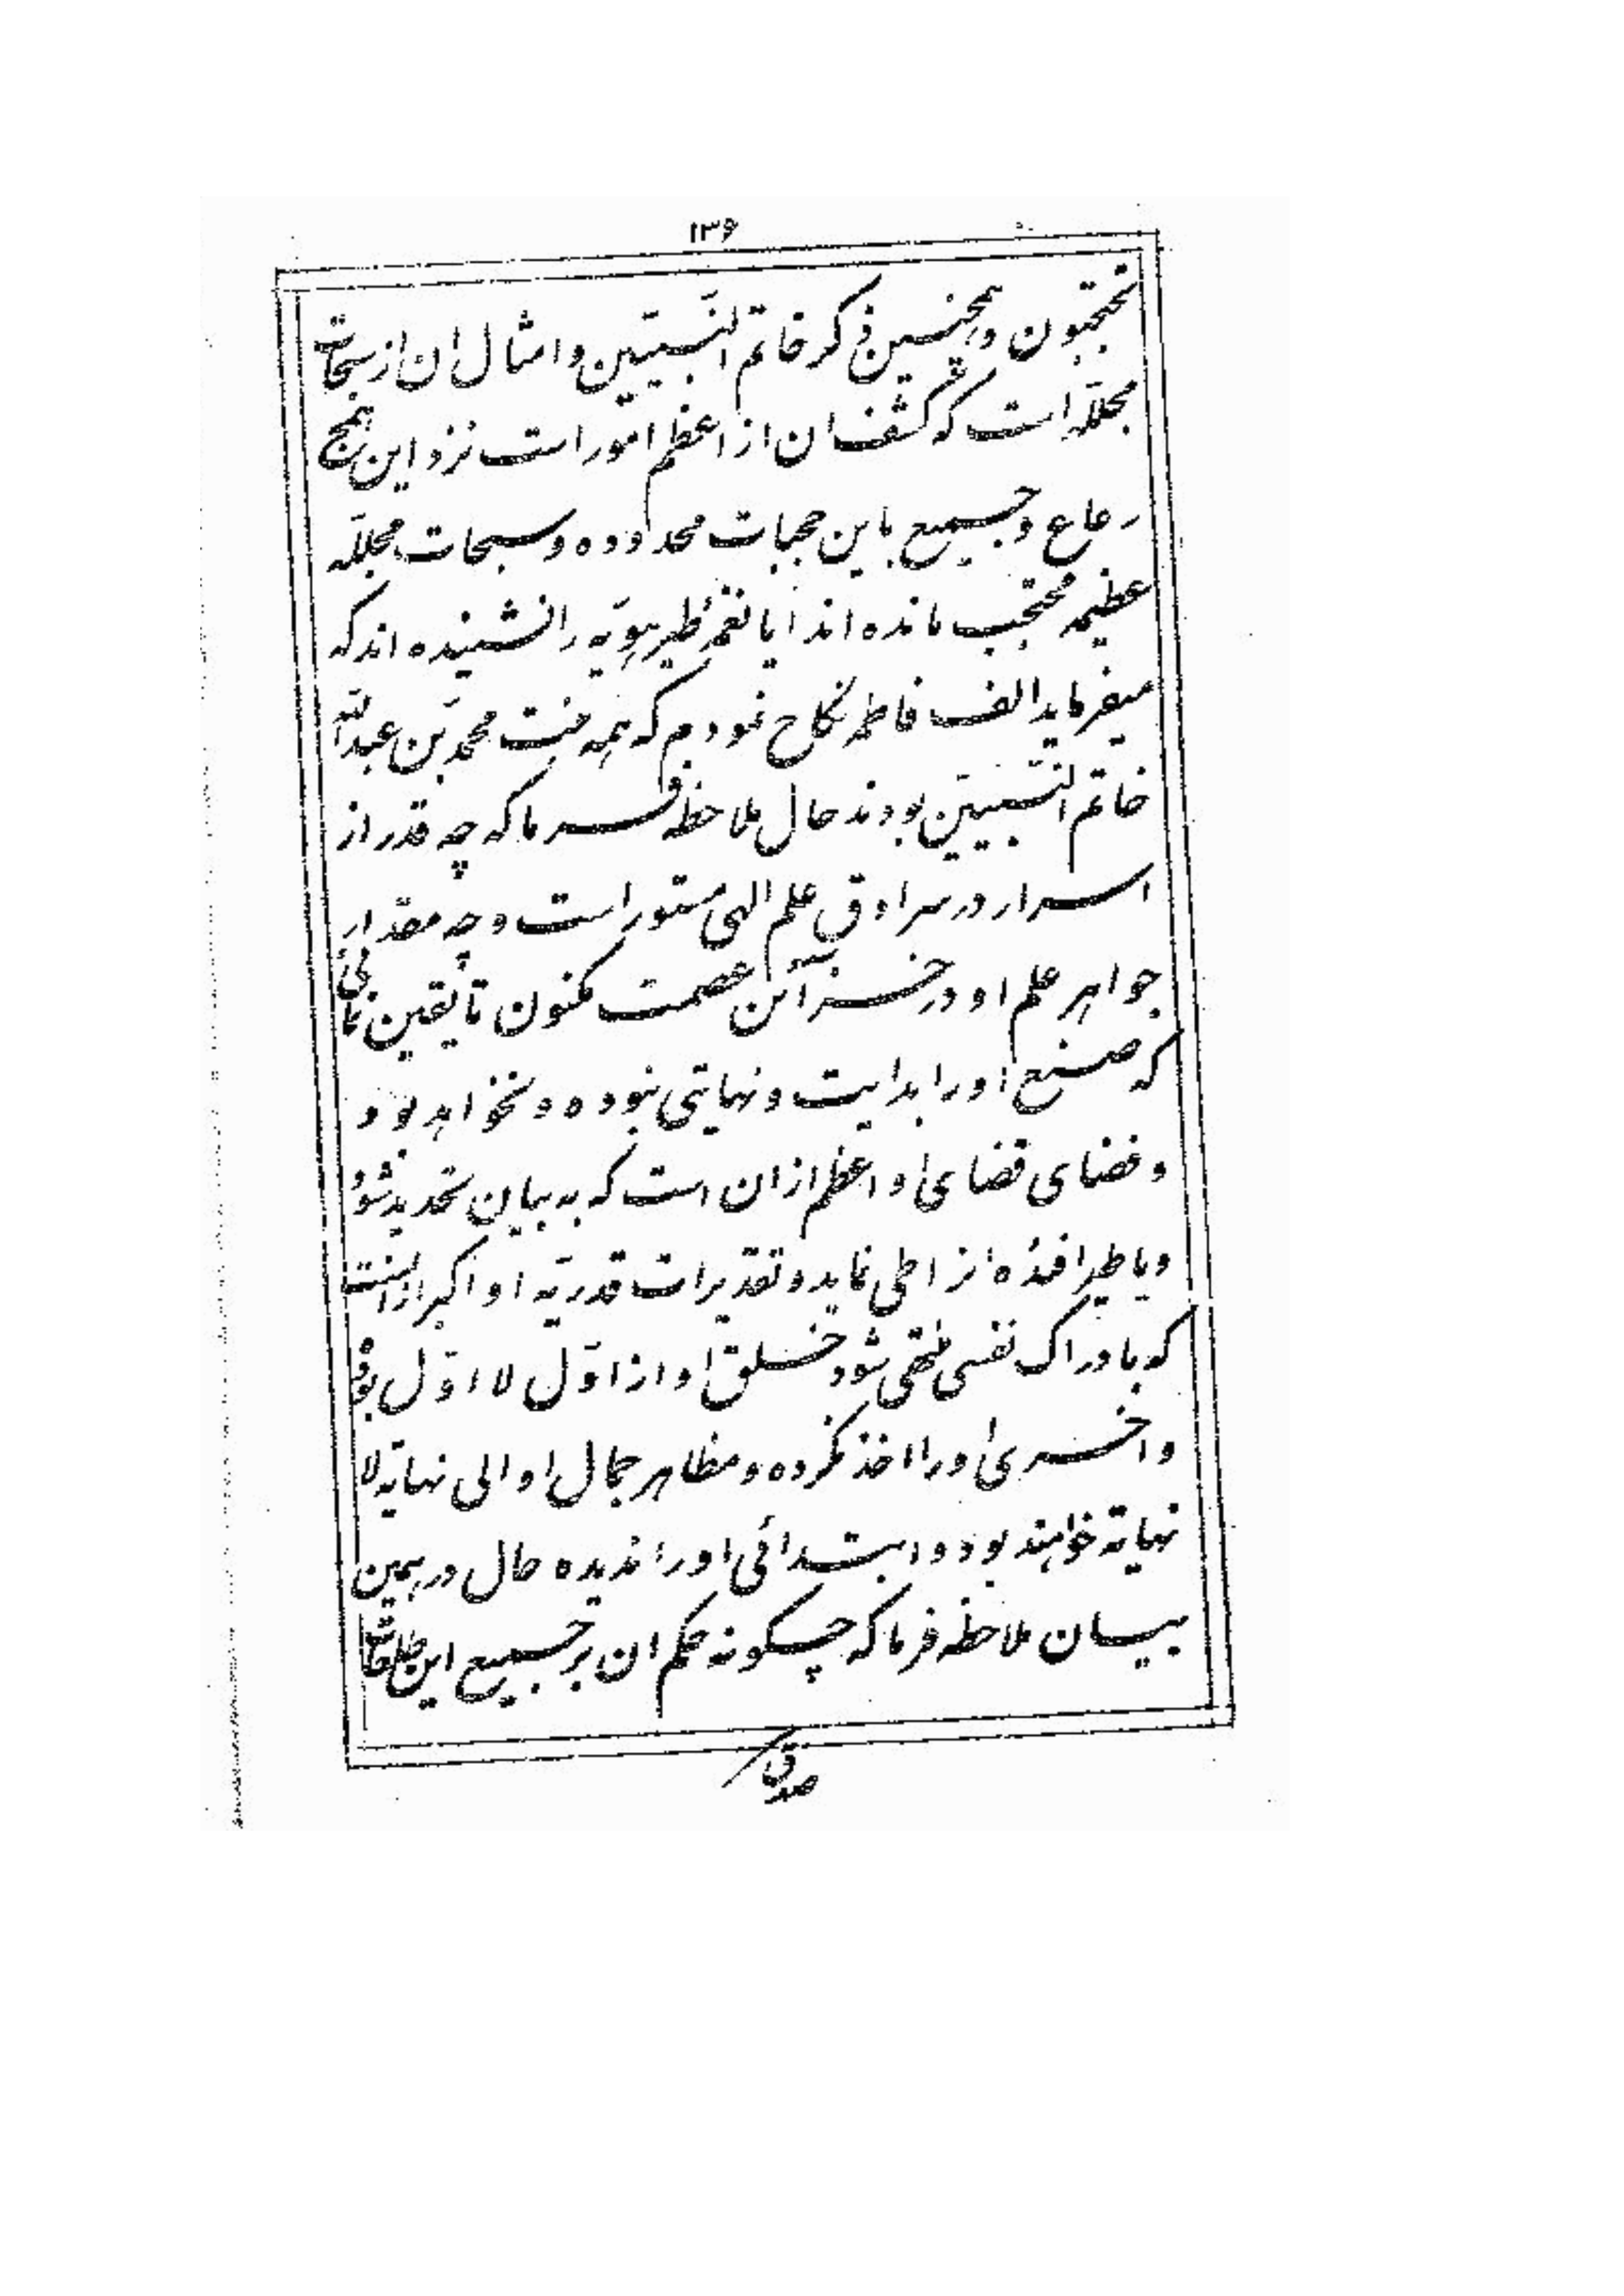 ۱۳۶
محتجبون و همچنین ذکر خاتم النّبیّین و امثال ان از سبحات
مجلّله است که کشف ان از اعظم امور است نزد این همج
رعاع و جمیع باین حجبات محدوده و سبحات مجللّه
عظیمه محتجب مانده اند ایا نغمهٔ طیر هویّه را نشنیده اند که
میفرماید الف فاطمه نکاح نمودم که همه بنت محمد بن عبدالله
خاتم النّبیّین بودند حال ملاحظه فرما که چه قدر از
اسرار در سرادق علم الهی مستور است و چه مقدار
جواهر علم او در خزآئن عصمت مکنون تا یقین نمائی
که صنع او را بدایت و نهایتی نبوده و نخواهد بود
و فضای قضای او اعظم از ان است که به بیان تحدید شود
و یا طیر افئده انرا طی نماید و تقدیرات قدریّه او اکبر از انست
که بادراک نفسی منتهی شود خلق او از اوّل لا اوّل بوده
و اخری او را اخذ نکرده و مظاهر جمال او الی نهایة لا
نهایة خواهند بود و ابتدائی او را ندیده حال در همین
بیان ملاحظه فرما که چگونه حکم ان بر جمیع این طلعات
صدق